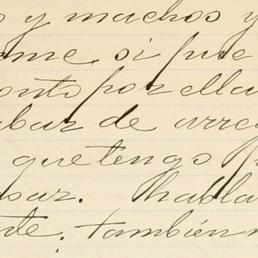 y muchos y
me si pue
onto por ella
abar de arre
que tengo
sar. habla
te, también